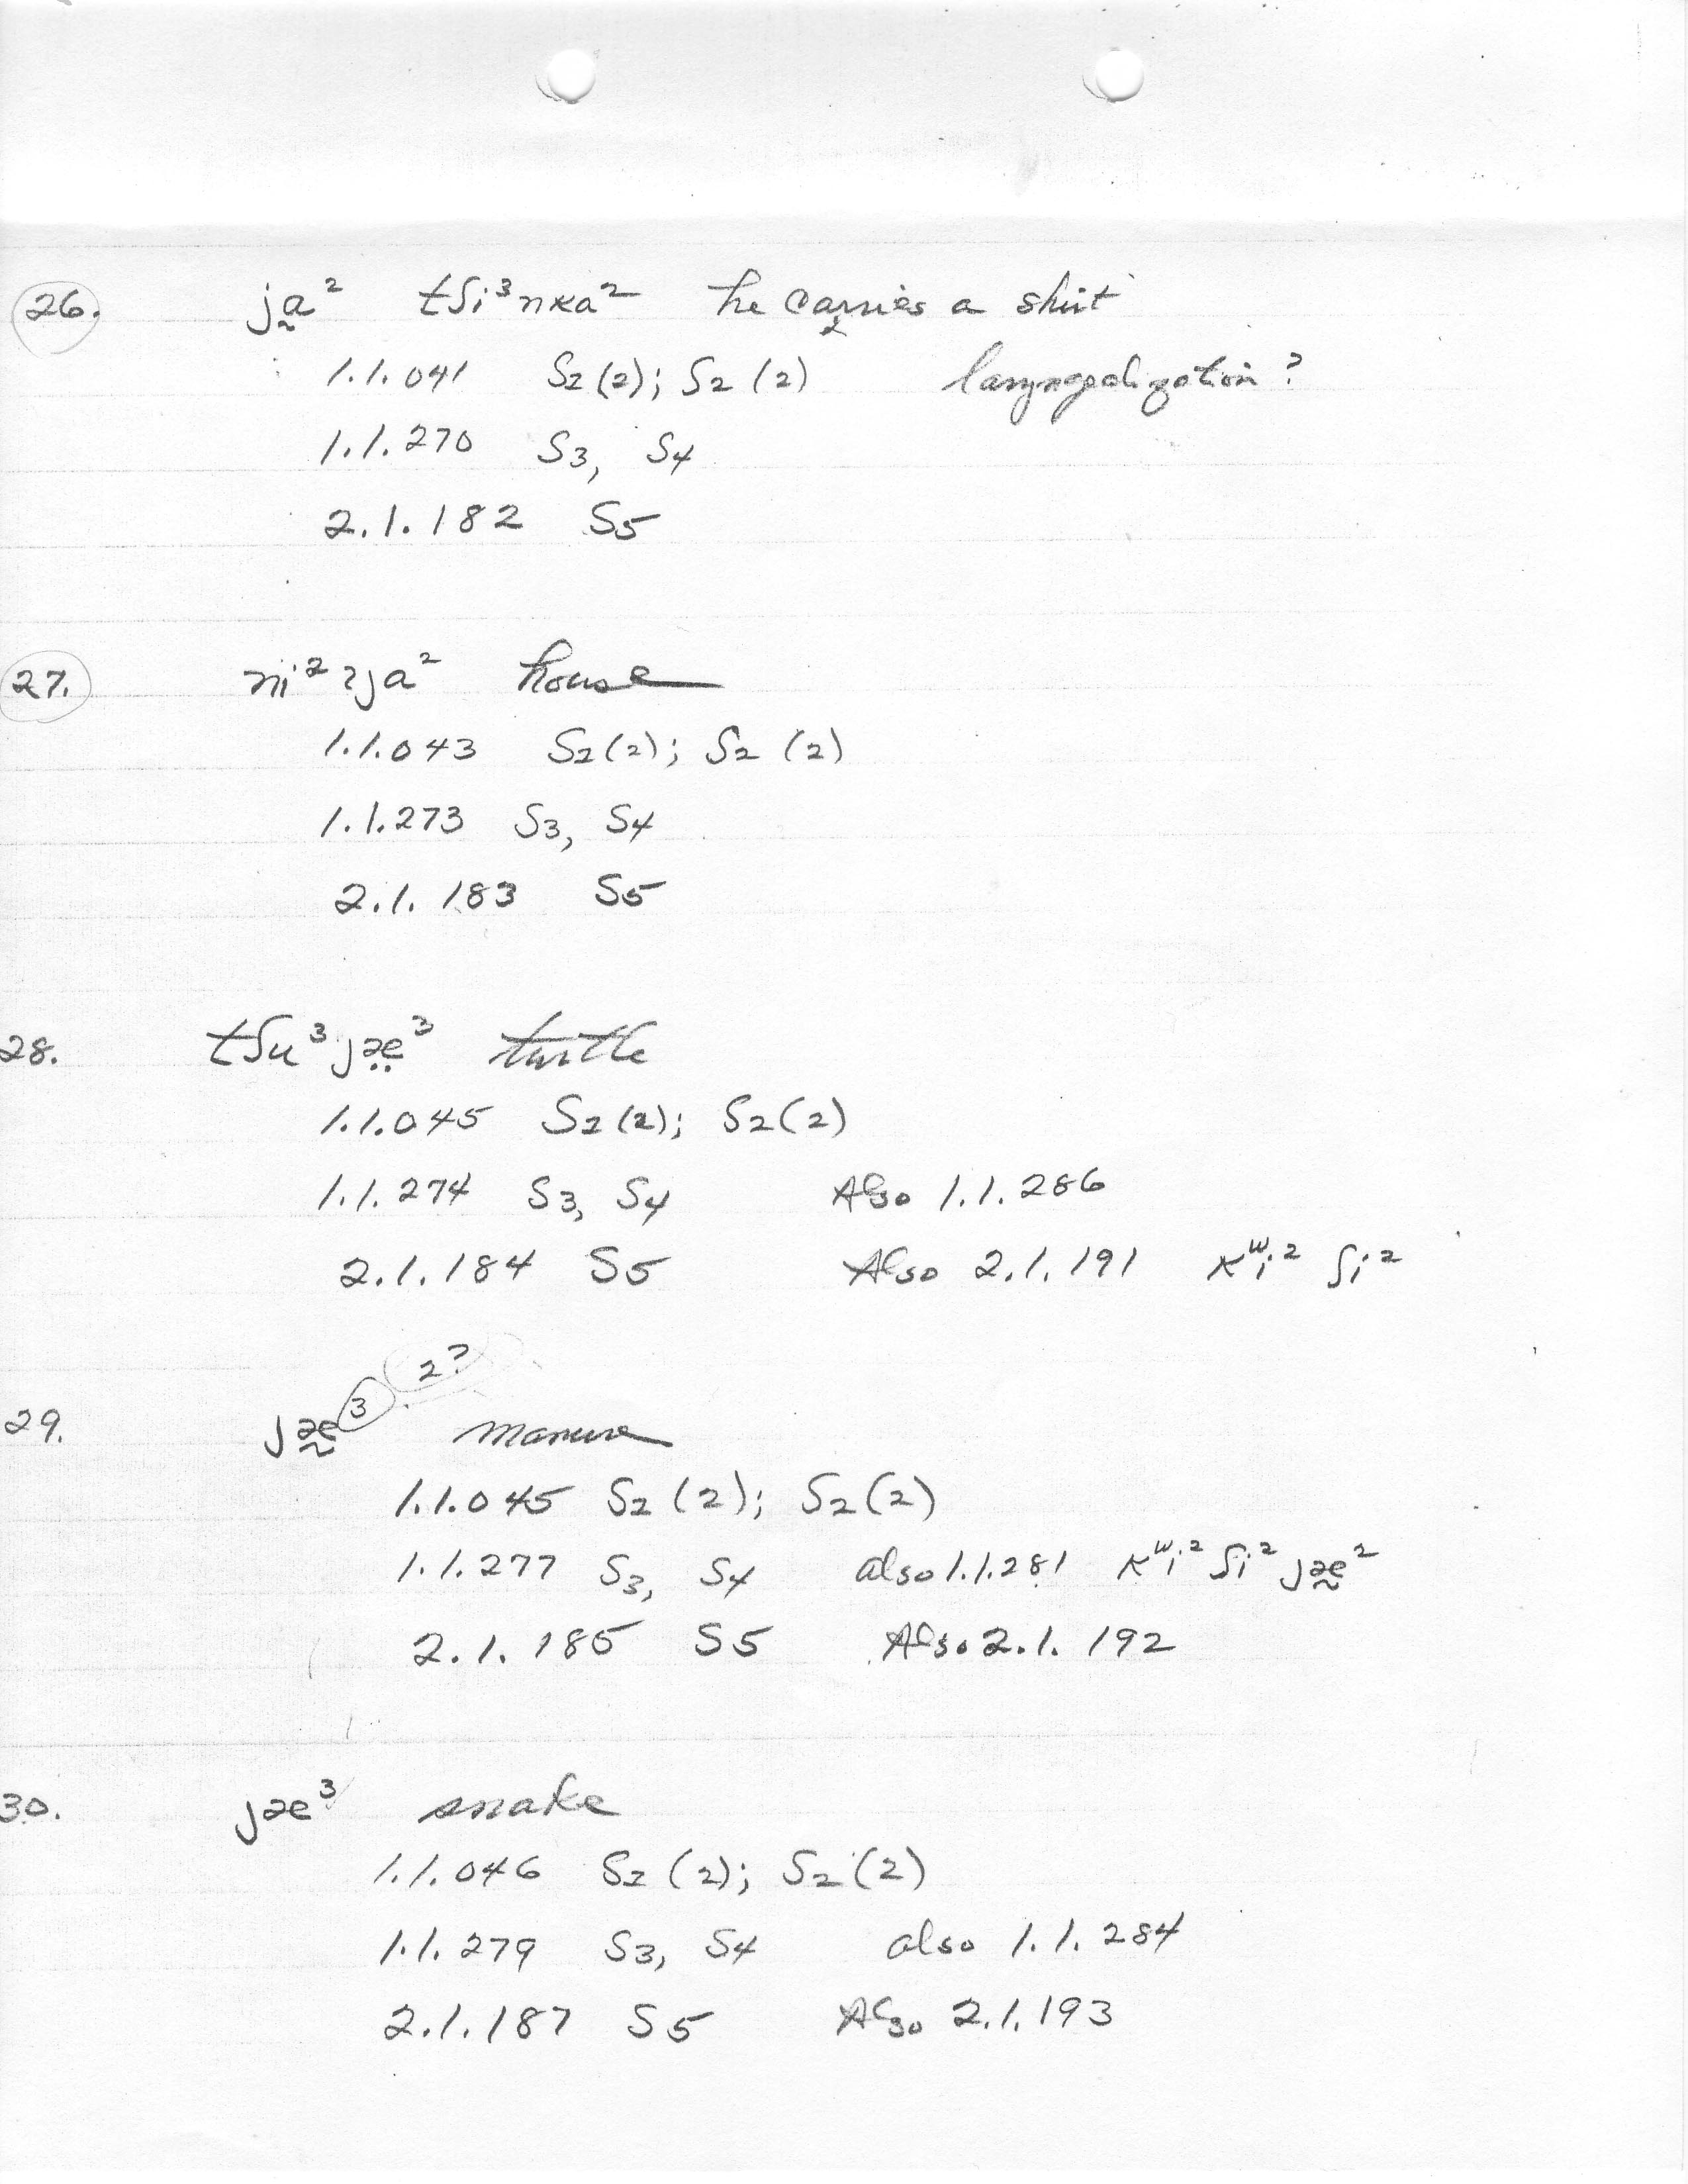 26. ja̰² tʃi³nka² he carries a shirt
1.1.041 S2(2); S2(2) laryngealization?
1.1.270 S3, S4
2.1.182 S5
27. ni²ʔja² house
1.1.043 S2(2); S2(2)
1.1.273 S3, S4
2.1.183 S5
28. tʃu³jæ̤³ turtle
1.1.045 S2(2); S2(2)
1.1.274 S3, S4 Also 1.1.286
2.1.184 S5 Also 2.1.191 kʷi² ʃi²
2?
29. jæ̰³ manure
1.1.045 S2(2); S2(2)
1.1.277 S3, S4 also 1.1.281 kʷi²ʃi²jæ̰²
2.1.185 S5 Also 2.1.192
30. jæ³ snake
1.1.046 S2(2); S2(2)
1.1.279 S3, S4 also 1.1.284
2.1.187 S5 Also 2.1.193